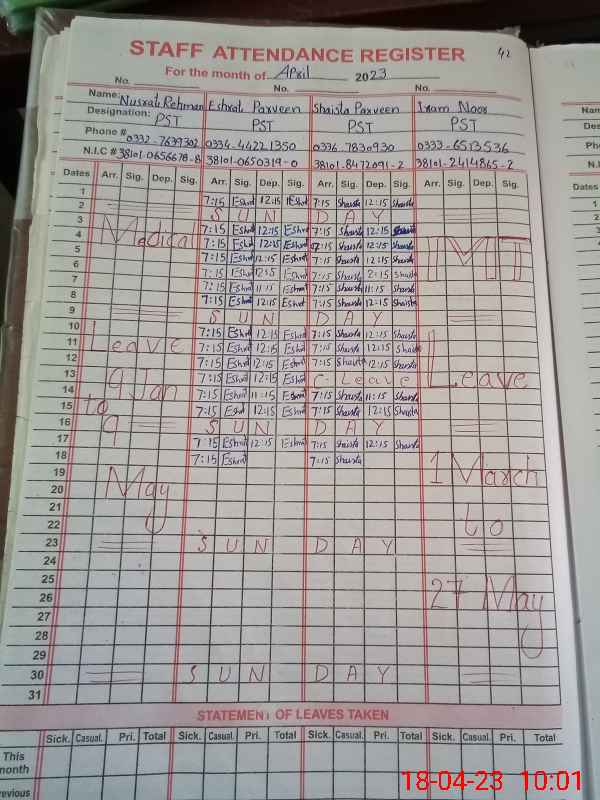 42
STAFF ATTENDANCE REGISTER
For the month of April 2023
No. No. No.
Name: Nusrat Rehman Eshrat Parveen Shaista Parveen Iram Noor
Designation: PST PST PST PST
Phone # 0332-7639302 0334-4421350 0336-7830930 0333-6513536
N.I.C # 38101-0656678-8 38101-0650319-0 38101-8472091-2 38101-2414865-2
Dates Arr. Sig. Dep. Sig. Arr. Sig. Dep. Sig. Arr. Sig. Dep. Sig. Arr. Sig. Dep. Sig.
1 7:15 Eshrat 12:15 Eshrat 7:15 Shaista 12:15 Shaista
2 S U N D A Y
3 7:15 Eshrat 12:15 Eshrat 7:15 Shaista 12:15
4 Medical 7:15 Eshrat 12:15 Eshrat 07:15 Shaista 12:15 Shaista
5 7:15 Eshrat 12:15 Eshrat 7:15 Shaista 12:15 Shaista
6 7:15 Eshrat 12:15 Eshrat 7:15 Shaista 12:15 Shaista
7 7:15 Eshrat 11:15 Eshrat 7:15 Shaista 11:15 Shaista
8 7:15 Eshrat 12:15 Eshrat 7:15 Shaista 12:15 Shaista
9 S U N D A Y
10 7:15 Eshrat 12:15 Eshrat 7:15 Shaista 12:15 Shaista
11 Leave 7:15 Eshrat 12:15 Eshrat 7:15 Shaista 12:15 Shaista
12 7:15 Eshrat 12:15 Eshrat 7:15 Shaista 12:15 Shaista
13 9 Jan 7:15 Eshrat 12:15 Eshrat C-Leave Leave
14 7:15 Eshrat 11:15 Eshrat 7:15 Shaista 11:15 Shaista
15 to 7:15 Eshrat 12:15 Eshrat 7:15 Shaista 12:15 Shaista
16 9 S U N D A Y
17 7:15 Eshrat 12:15 Eshrat 7:15 Shaista 12:15 Shaista
18 7:15 Eshrat 7:15 Shaista 1 March
19
20 May
21
22 to
23 S U N D A Y
24
25
26 27 May
27
28
29
30 S U N D A Y
31
STATEMENT OF LEAVES TAKEN
Sick. Casual. Pri. Total Sick. Casual. Pri. Total Sick. Casual. Pri. Total Sick. Casual. Pri. Total
This
month
Previous
Nam
Desig
Pho
N.I.
Dates
1
2
3
18-04-23 10:01